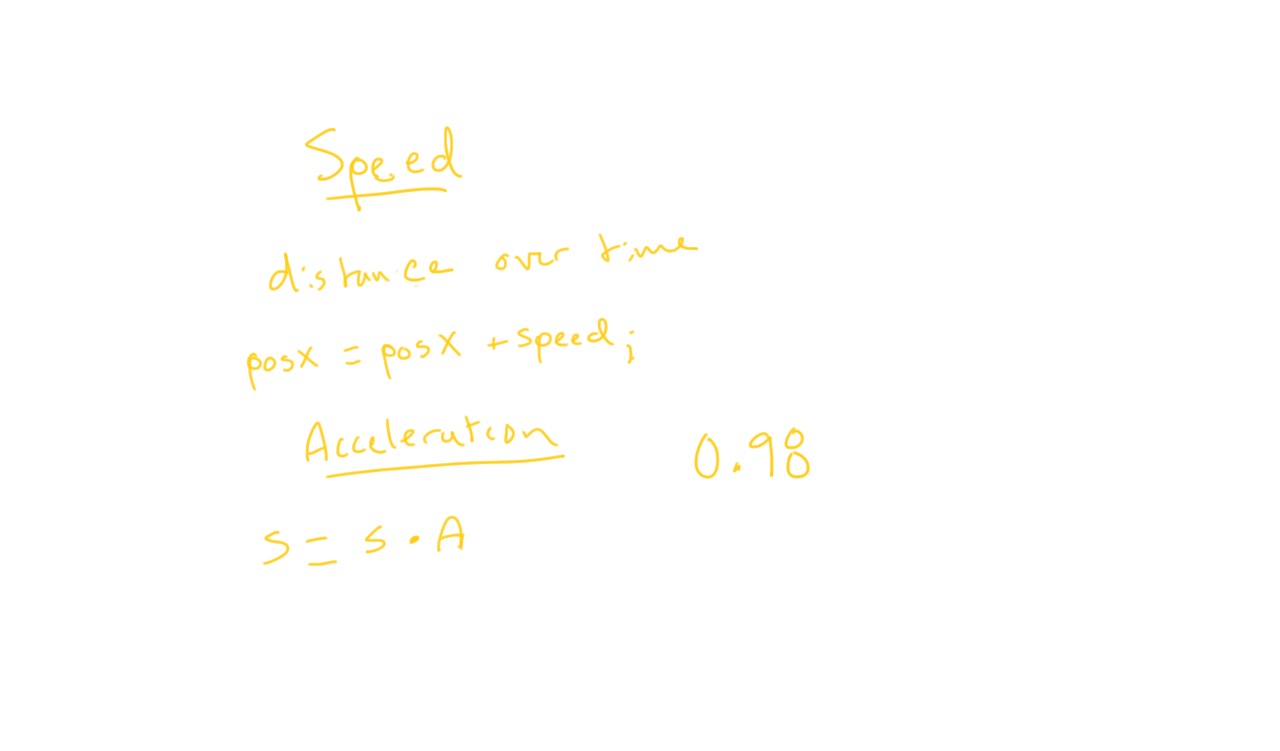 Speed
distance over time
posX = posX + speed;
Acceleration
0.98
S = S · A